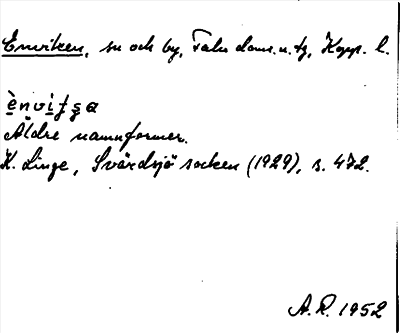 Enviken, sn och by, Falu doms. o. tg, Kopp. l.
ènvitsa
Äldre namnformer.
K. Linge, Svärdsjö socken (1929), s. 472.
A.R. 1952